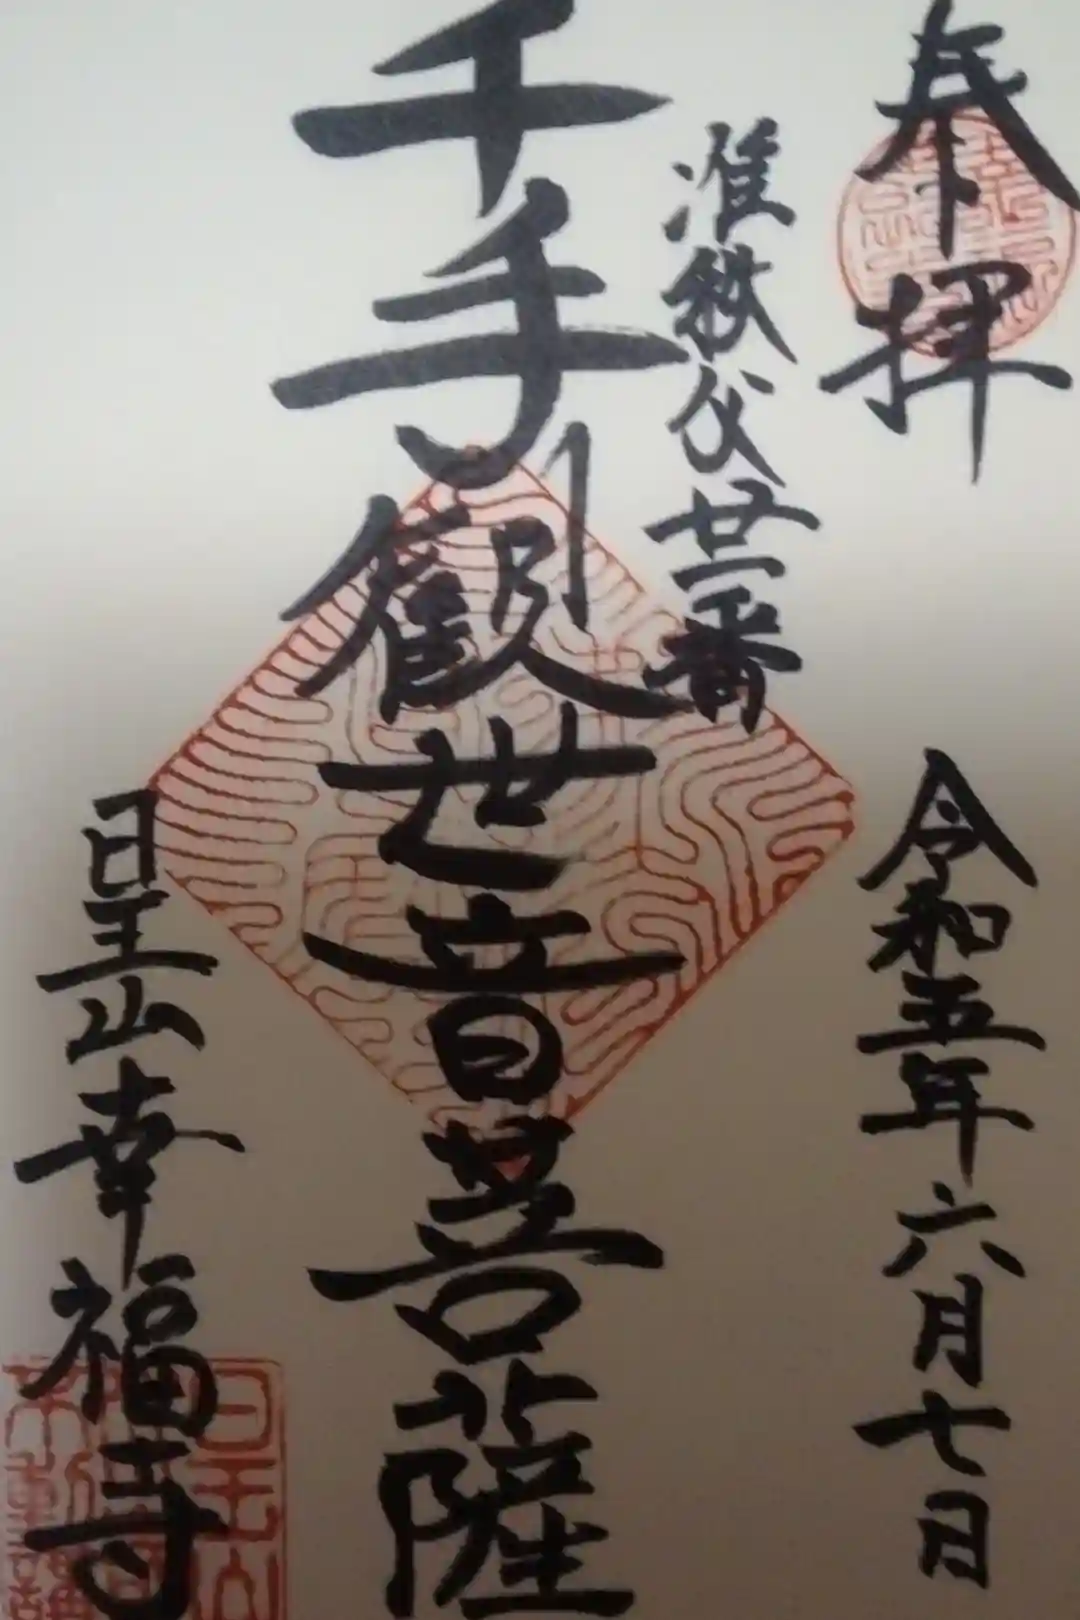 奉拝
令和五年六月七日
准秩父廿二番
千手観世音菩薩
日王山幸福寺